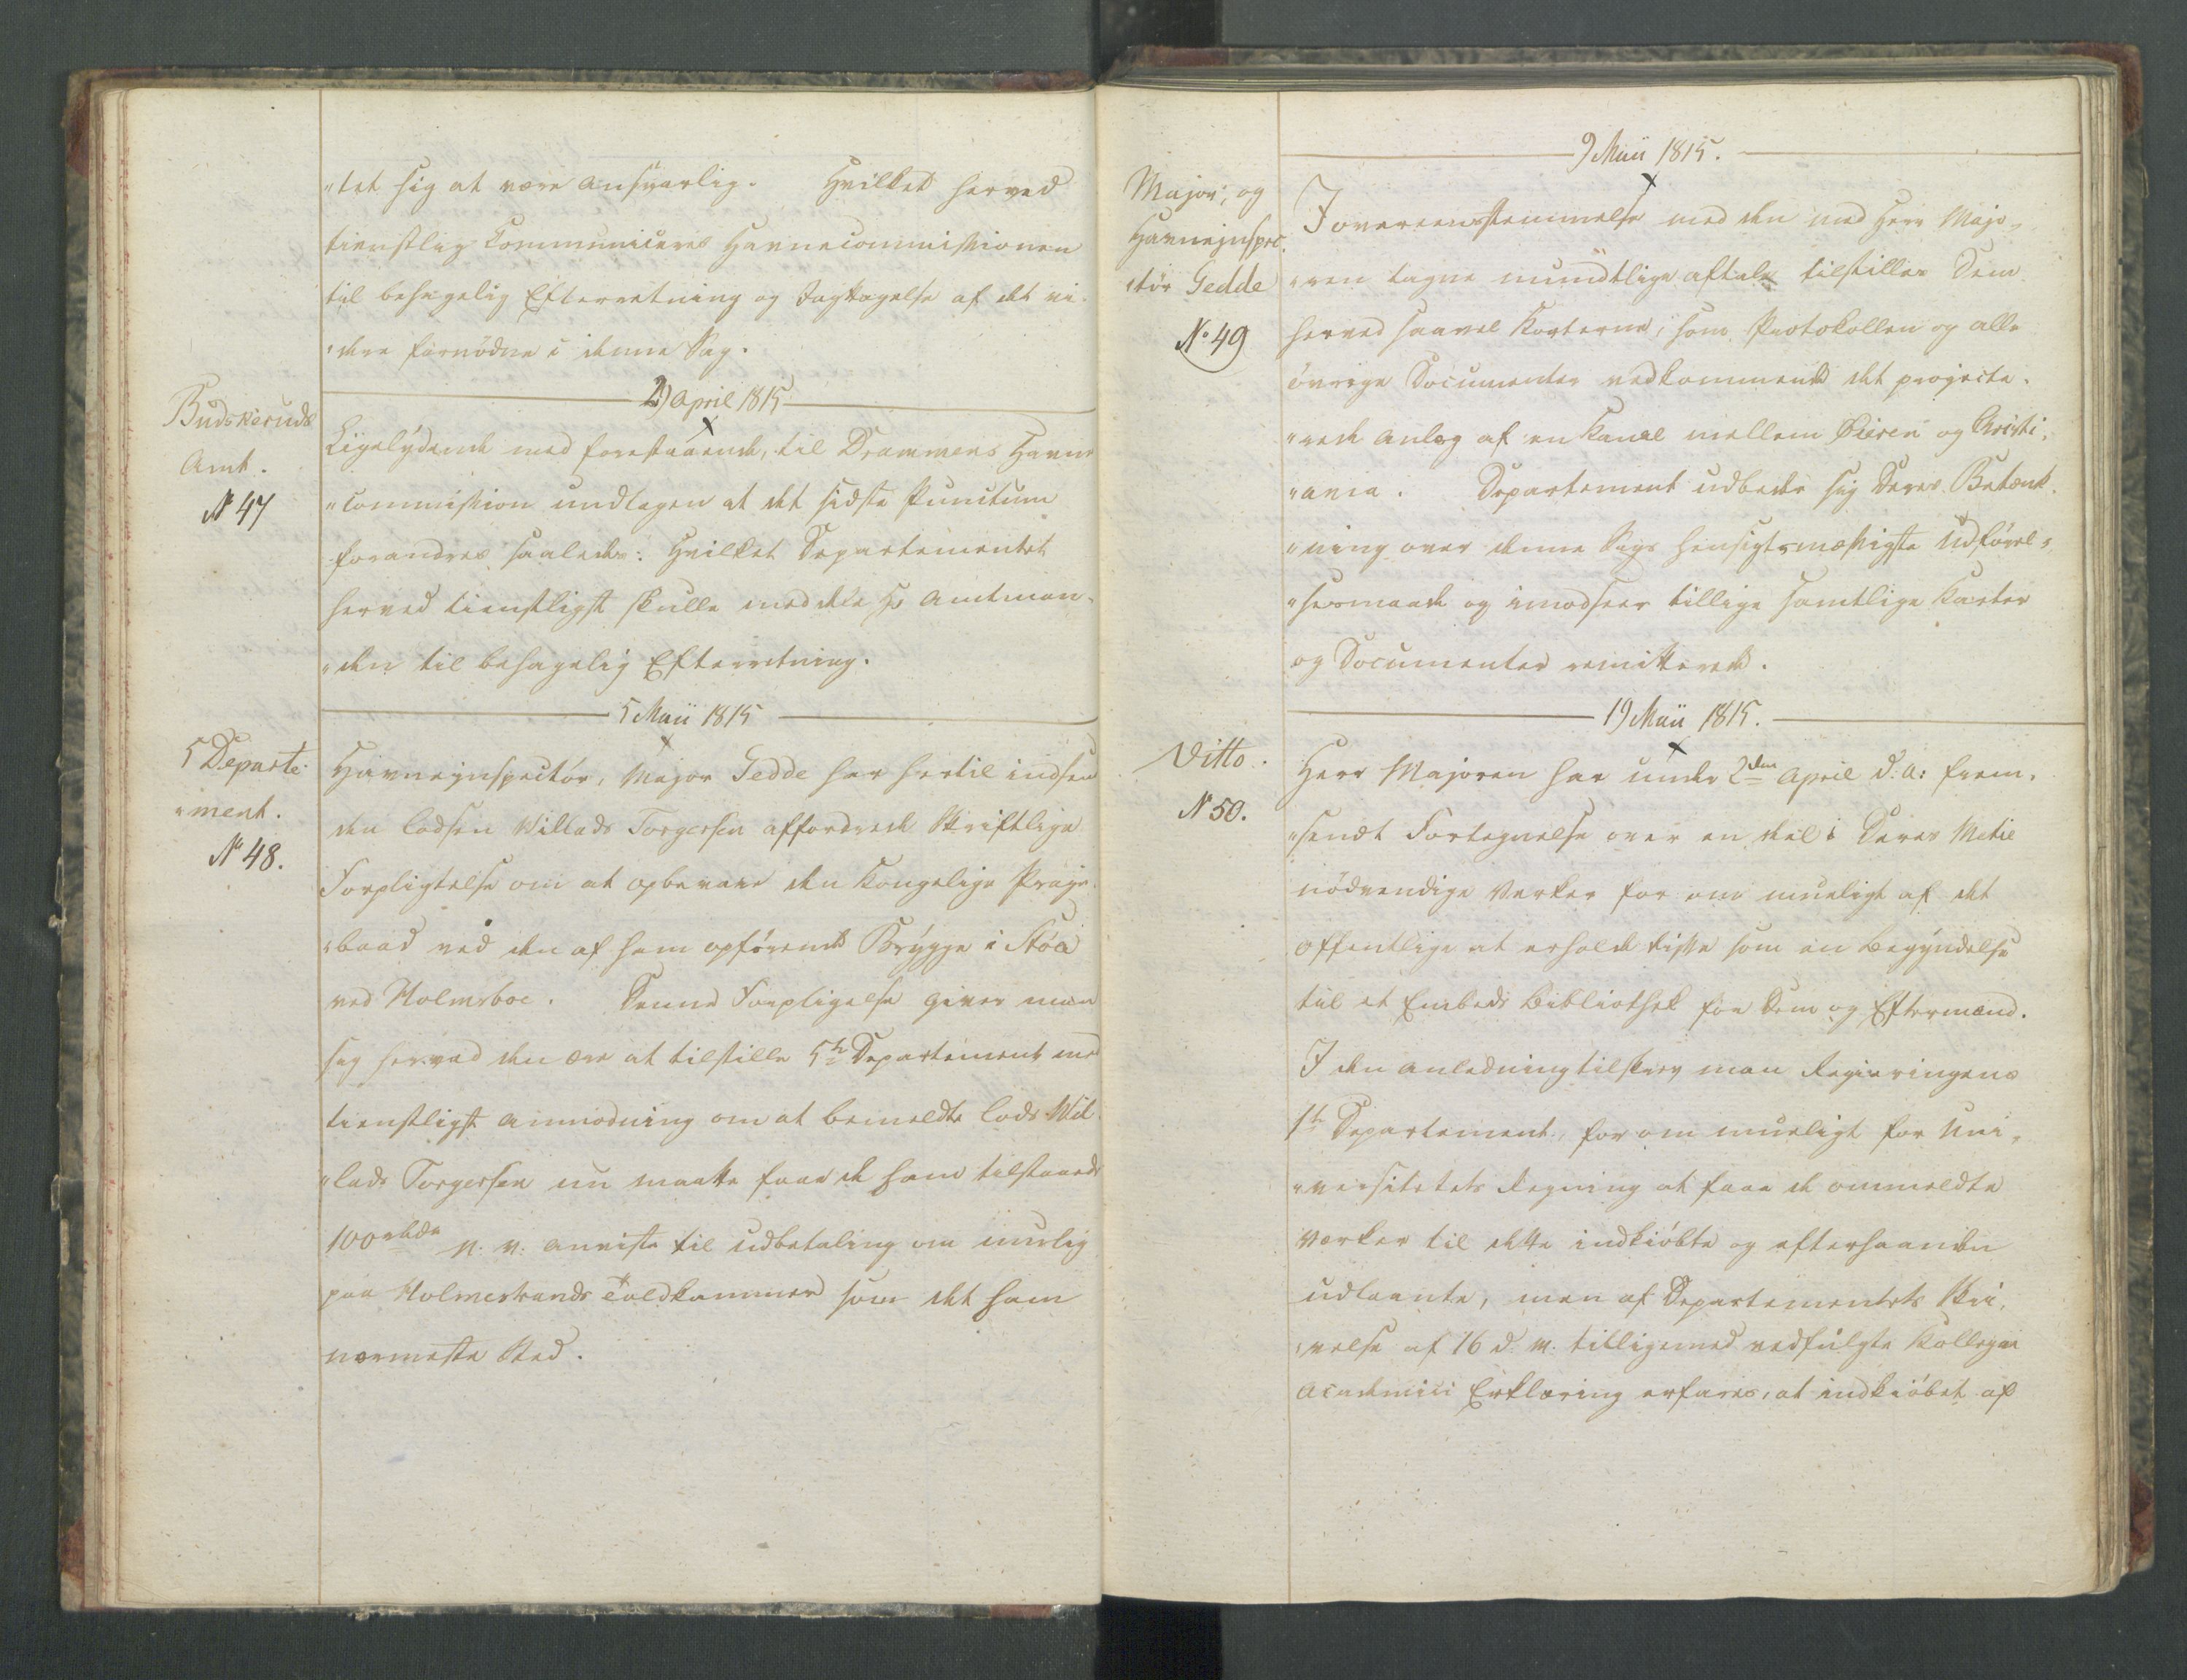 "tet sig at være ansvarlig. Hvilket herved
tienstlig Communiceres Havnecommissionen
til behagelig Efterretning og Jagttagelse af det vi-
"dere fornödne i denne Sag.
29 April 1815
Budskeruds
Amt.
No 47
Ligelydende med forestaaende, til Drammens Havne
"Commission undtagen at det sidste Punctum
forandres saaledes: Hvilket Departementet
herved tienstligst skulle meddele Hr Amtman-
"den til behagelig Efterretning.
5 Maii 1815
5 Departe-
"ment.
No 48.
Havneinspectör, Major Gedde har hertil indsen
den Lodsen Willads Torgersen affordrede skriftlige
Forpligtelse om at opbevare den Kongelige Praje-
"baad ved den af ham opförende Brygge i Stöa
ved Holmsboe. Denne Forpligtelse giver man
sig herved den ære at tilstille 5te Departement med
tienstligst anmodning om at bemeldte Lods Wil-
"lads Torgersen nu maatte faae de ham tilstaaede
100 rbdr N. V. anviste til udbetaling om muelig
paa Holmestrands Toldkammer som det ham
nærmeste Sted.
9 Maii 1815.
Major, og
Havneinspec-
"tör Gedde
No 49
I overeensstemmelse med den med Herr Majo-
"ren tagne mundtlige aftale tilstilles Dem
herved saavel Karterne, som Protokollen og alle
övrige Documenter vedkommende det projecte-
"rede Anlæg af en Kanal mellem Öieren og Christi-
"ania. Departement udbeder sig Deres Betænk-
"ning over denne Sags hensigtsmæssigste Udförel-
"sesmaade og imodseer tillige samtlige Karter
og Documenter remitterede.
19 Maii 1815.
Ditto.
No 50.
Herr Majoren har under 2den April d: A: frem-
"sendt Fortegnelse over en deel i Deres Metie
nödvendige Verker for om mueligt af det
offentlige at erholde disse som en Begyndelse
til et Embeds Bibliothek for Dem og Eftermænd.
I den Anledning tilskrev man Regieringens
1te Departement, for om mueligt for Uni-
"versitetets Regning at faae de ommeldte
Værker til dette indkiöbte og efterhaanden
udlaante, men af Departementets Skri-
"velse af 16 d. M. tilligemed vedfulgte Kollegii
Academici Erklæring erfares, at indkiöbet af